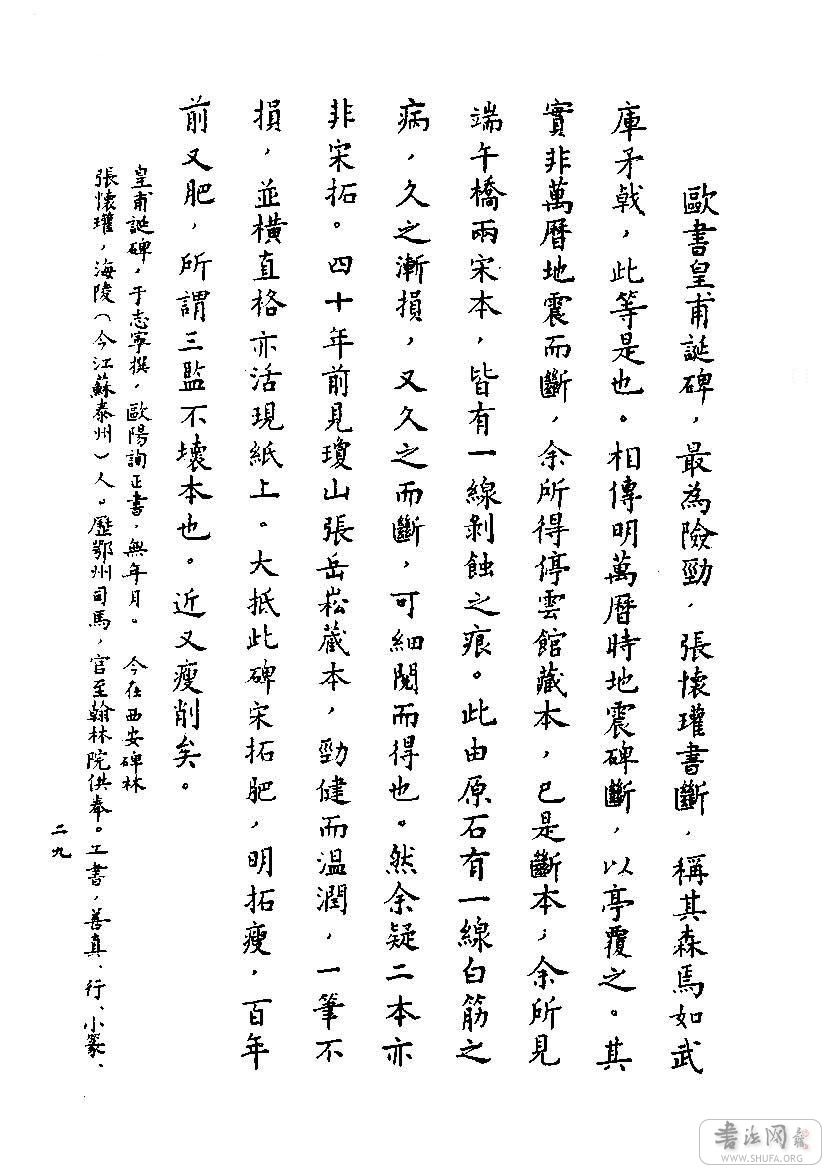 歐書皇甫誕碑，最為險勁，張懷瓘書斷，稱其森焉如武
庫矛戟，此等是也。相傳明萬曆時地震碑斷，以亭覆之。其
實非萬曆地震而斷，余所得停雲館藏本，已是斷本，余所見
端午橋兩宋本，皆有一線剝蝕之痕。此由原石有一線白筋之
病，久之漸損，又久之而斷，可細閱而得也。然余疑二本亦
非宋拓。四十年前見瓊山張岳崧藏本，勁健而溫潤，一筆不
損，並橫直格亦活現紙上。大抵此碑宋拓肥，明拓瘦，百年
前又肥，所謂三監不壞本也。近又瘦削矣。
皇甫誕碑，于志寧撰，歐陽詢正書，無年月。 今在西安碑林
張懷瓘，海陵（今江蘇泰州）人。歷鄂州司馬，官至翰林院供奉。工書，善真、行、小篆、
二九
書法网
WWW.SHUFA.ORG